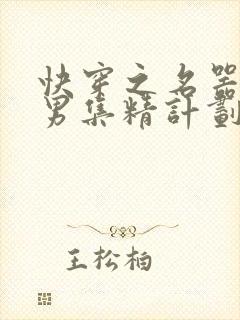 快穿之名器
男集精計劃
王松柏